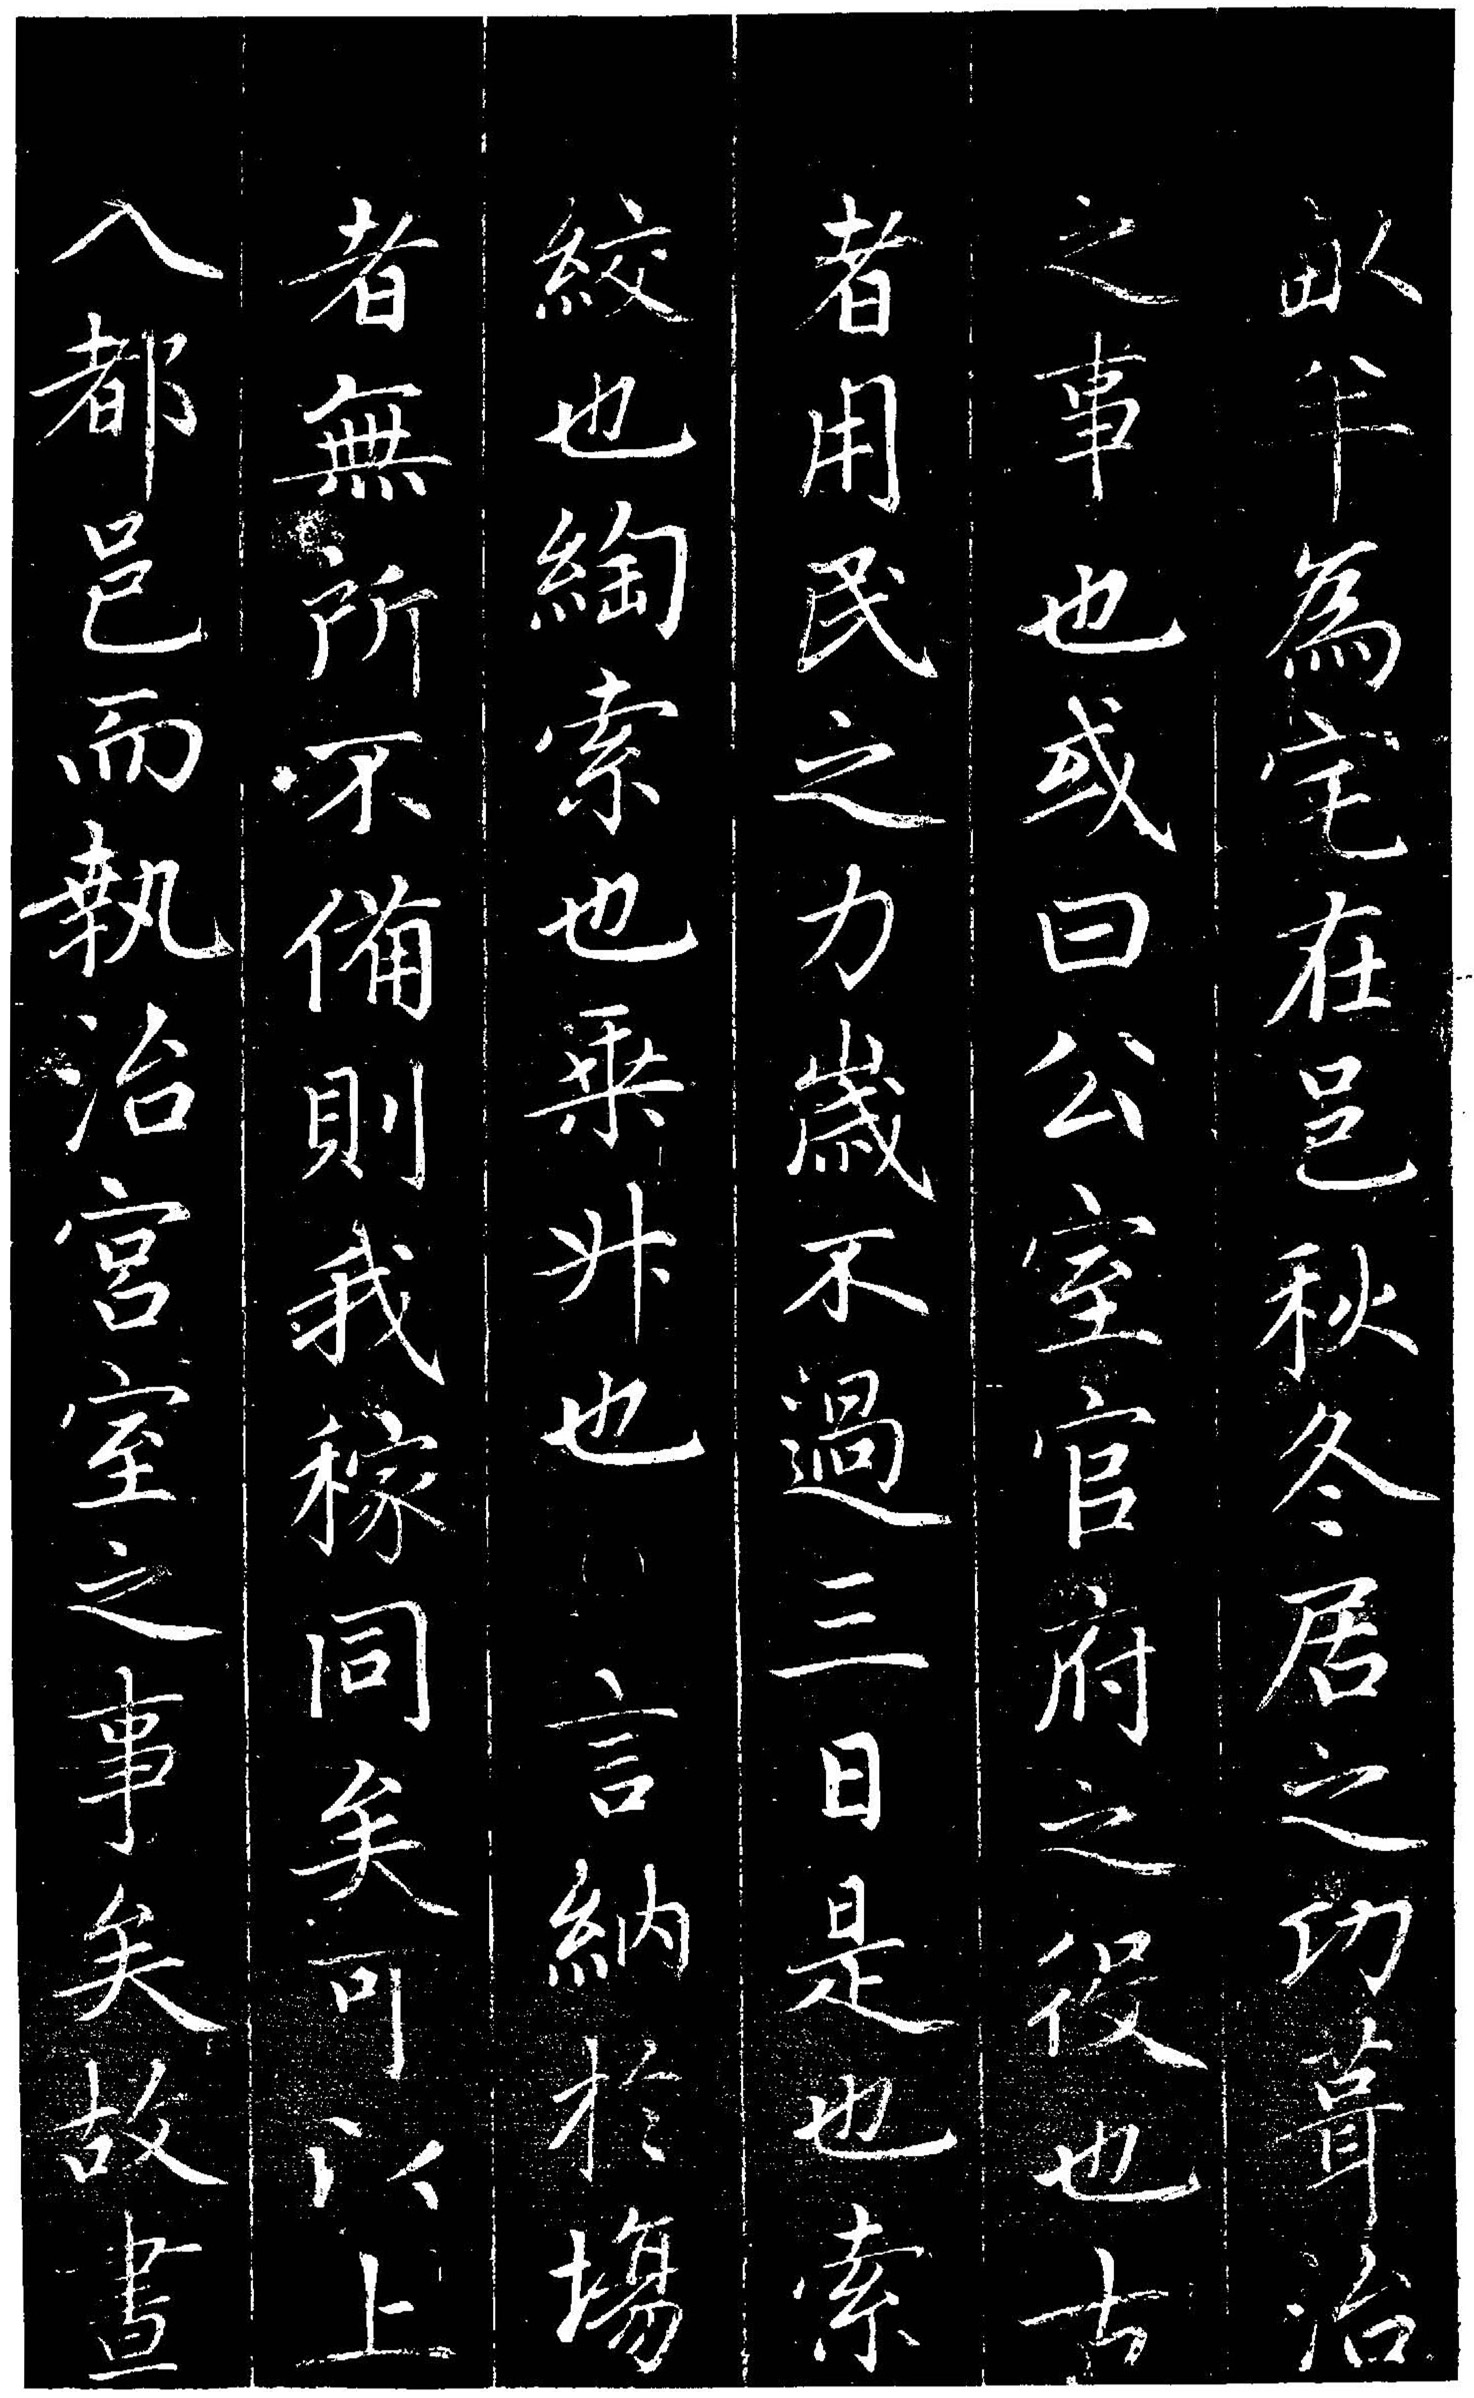 畝半為宅在邑秋冬居之功葺治
之事也或曰公室官府之役也古
者用民之力歲不過三日是也索
絞也綯索也乗升也言納於場
者無所不備則我稼同矣可以上
入都邑而執治宮室之事矣故晝